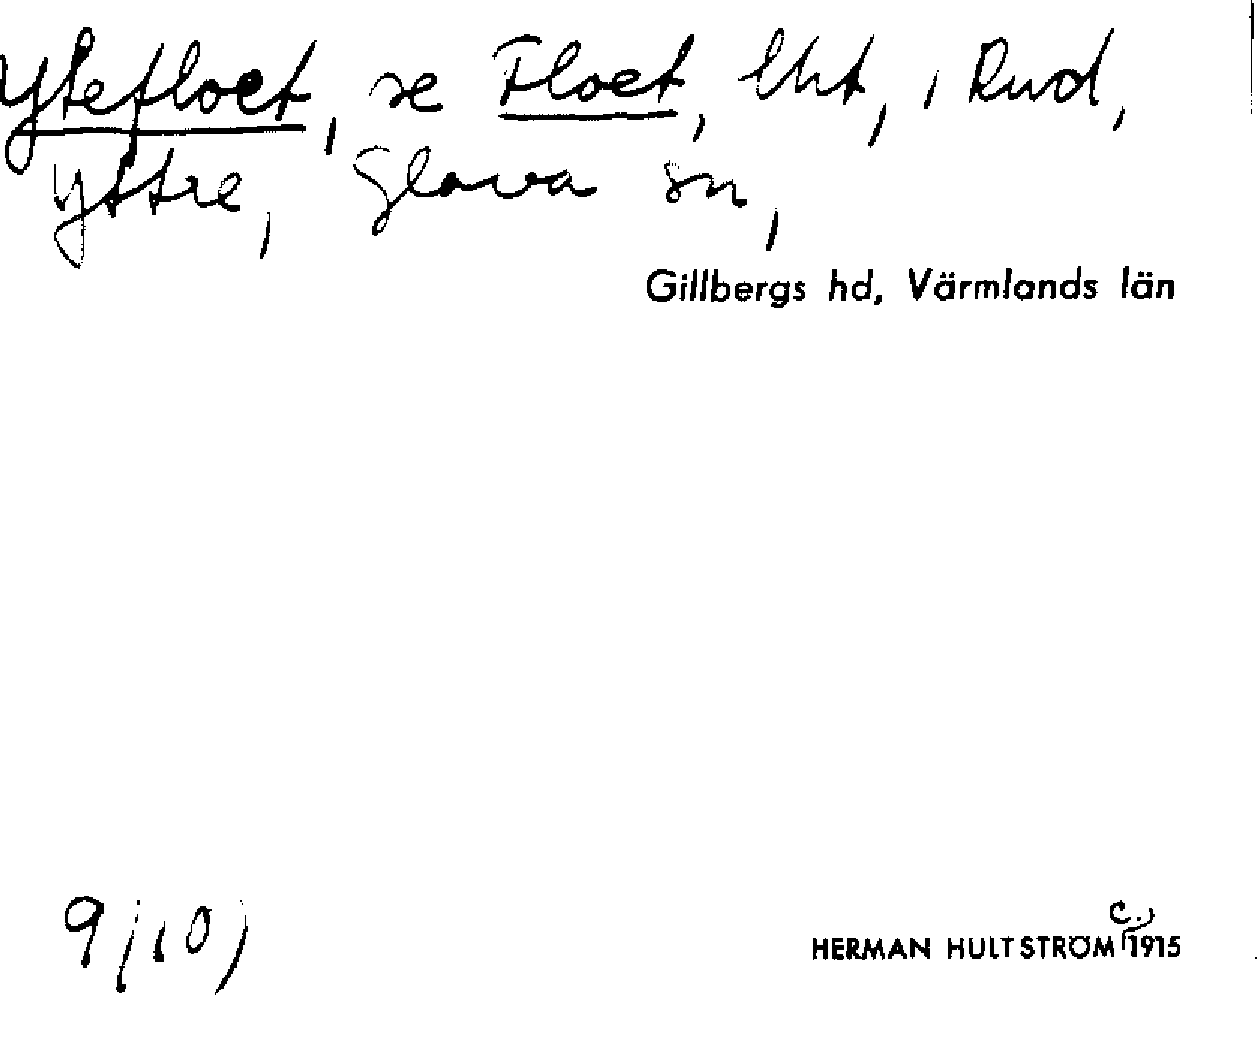 Ytefloet, se Floet, lht, i Rud,
yttre, Glava sn,
Gillbergs hd, Värmlands län
9(10)
HERMAN HULTSTRÖM c. 1915